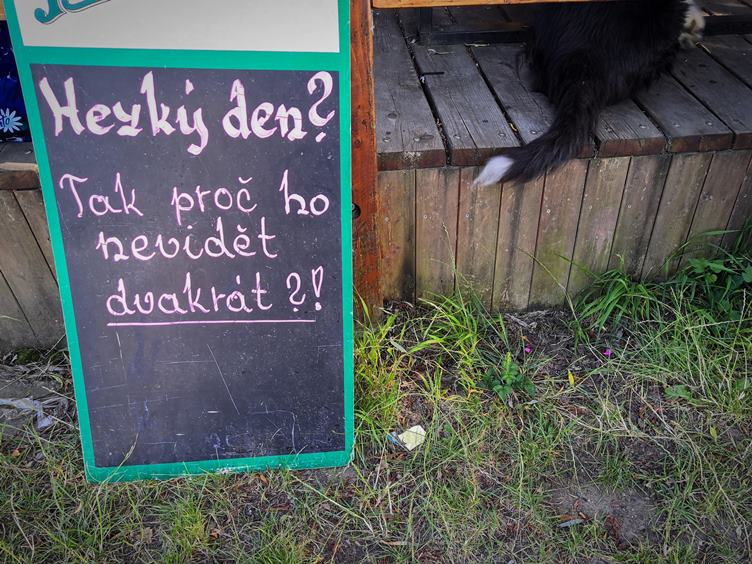 Hezký den?
Tak proč ho
nevidět
dvakrát?!